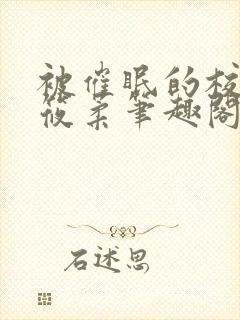 被催眠的校
筱柔笔趣阁
石述思